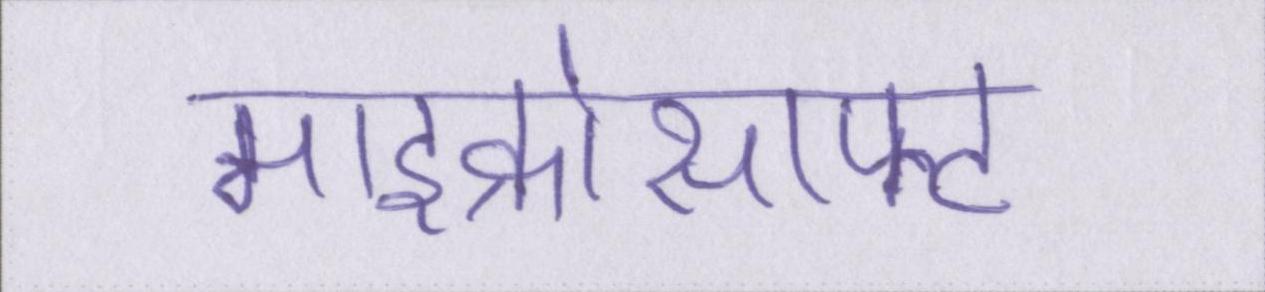 माइक्रोसाफ्ट